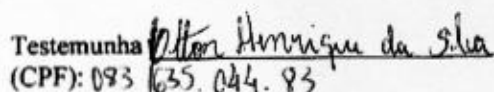 Testemunha Ollton Henrique da Silva
(CPF): 093 635.044.83